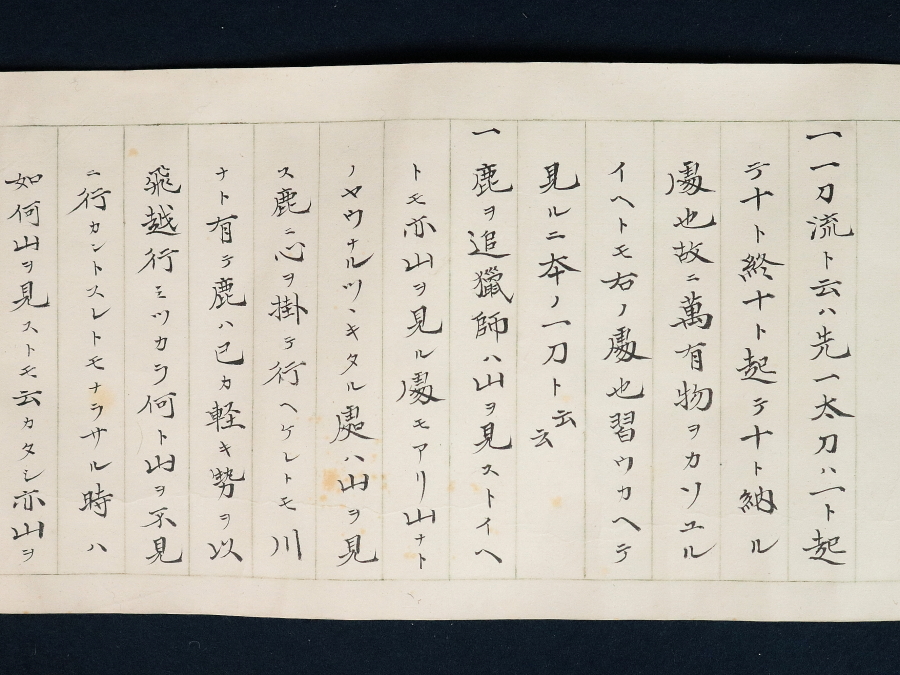 一一刀流ト云ハ先一太刀ハ一ト起
テ十ト終十ト起テ十ト納ル
處也故ニ萬有物ヲカソユル
イヘトモ右ノ處也習ウカヘテ
見ルニ本ノ一刀ト云云
一鹿ヲ追獵師ハ山ヲ見ストイヘ
トモ亦山ヲ見ル處モアリ山ナト
ノヤウナルツヽキタル處ハ山ヲ見
ス鹿ニ心ヲ掛テ行ヘケレトモ川
ナト有テ鹿ハ已カ軽キ勢ヲ以
飛越行ミツカラ何ト山ヲ不見
ニ行カントスレトモナラサル時ハ
如何山ヲ見ストモ云カタシ亦山ヲ